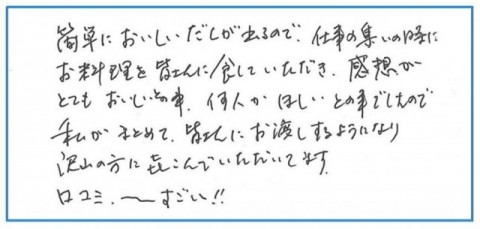 簡単においしいだしが出るので、仕事の集いの時に
お料理を皆さんに食していただき、感想が
とてもおいしいとの事、何人かほしいとの事でしたので
私がまとめて、皆さんにお渡しするようになり
沢山の方に喜こんでいただいてます。
口コミ、〜すごい!!